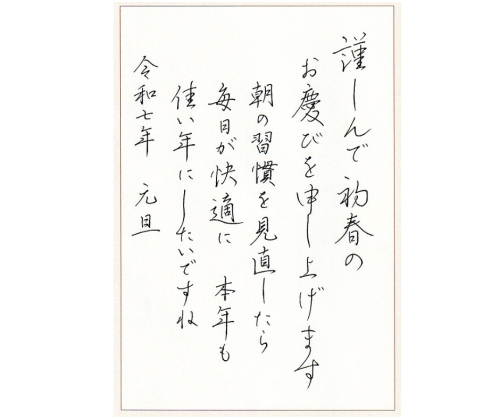 謹しんで初春の
お慶びを申し上げます
朝の習慣を見直したら
毎日が快適に　本年も
佳い年にしたいですね
令和七年　元旦